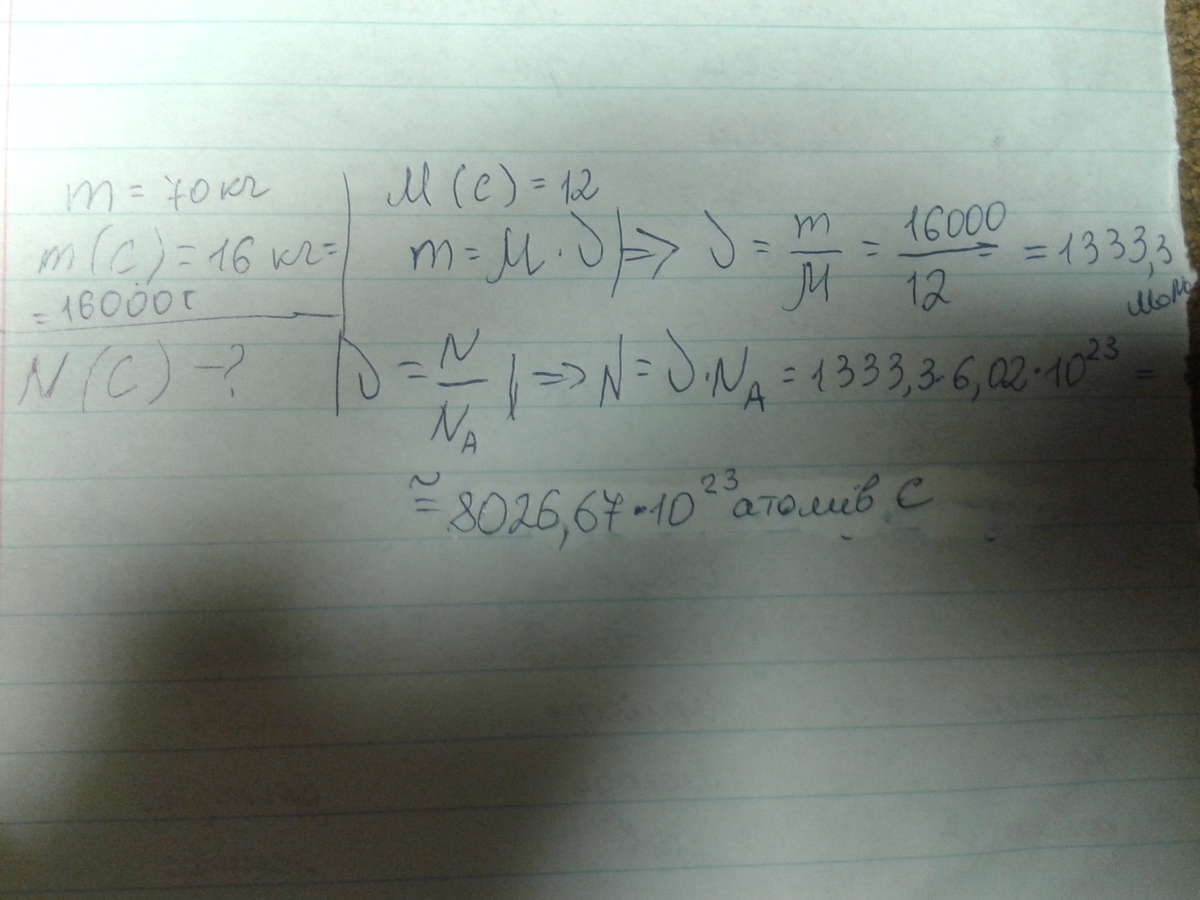 m = 70 кг
m(C) = 16 кг =
= 16000 г
N(C) - ?
M(C) = 12
m = M · ν | => ν = m/M = 16000/12 = 1333,3 моль
|ν = N/N_A | => N = ν · N_A = 1333,3 · 6,02 · 10²³ =
≅ 8026,67 · 10²³ атомів C